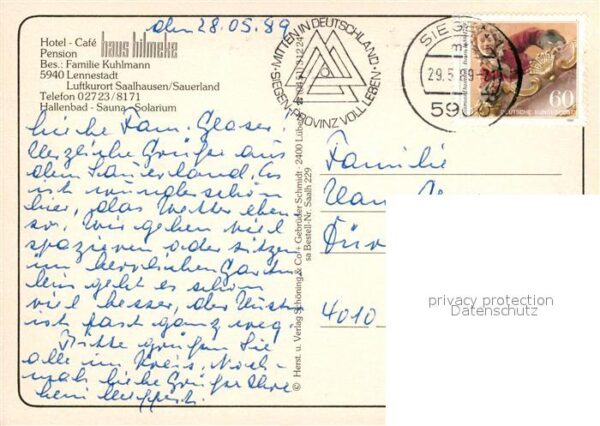 den 28.05.89
Hotel - Café haus hilmeke
Pension
Bes.: Familie Kuhlmann
5940 Lennestadt
Luftkurort Saalhausen/Sauerland
Telefon 02723/8171
Hallenbad - Sauna - Solarium
Liebe Fam. Glaser!
Herzliche Grüße aus
dem Sauerland. Es
ist wunderschön
hier, das Wetter eben-
so. Wir gehen viel
spazieren oder sitzen
im herrlichen Garten
geht es schon
viel besser, der Husten
ist fast ganz weg.
Bitte grüßen Sie
alle im Kreis. Noch-
mals liebe Grüße Ihre
© Herst. u. Verlag Schöning & Co + Gebrüder Schmidt · 2400 Lübeck
sa Bestell-Nr. Saalh 229
MITTEN IN DEUTSCHLAND ·
SIEGEN · PROVINZ VOLL LEBEN
SIEG
29.5.89
5900
60
DEUTSCHE BUNDESPOST
Familie
4010
privacy protection
Datenschutz